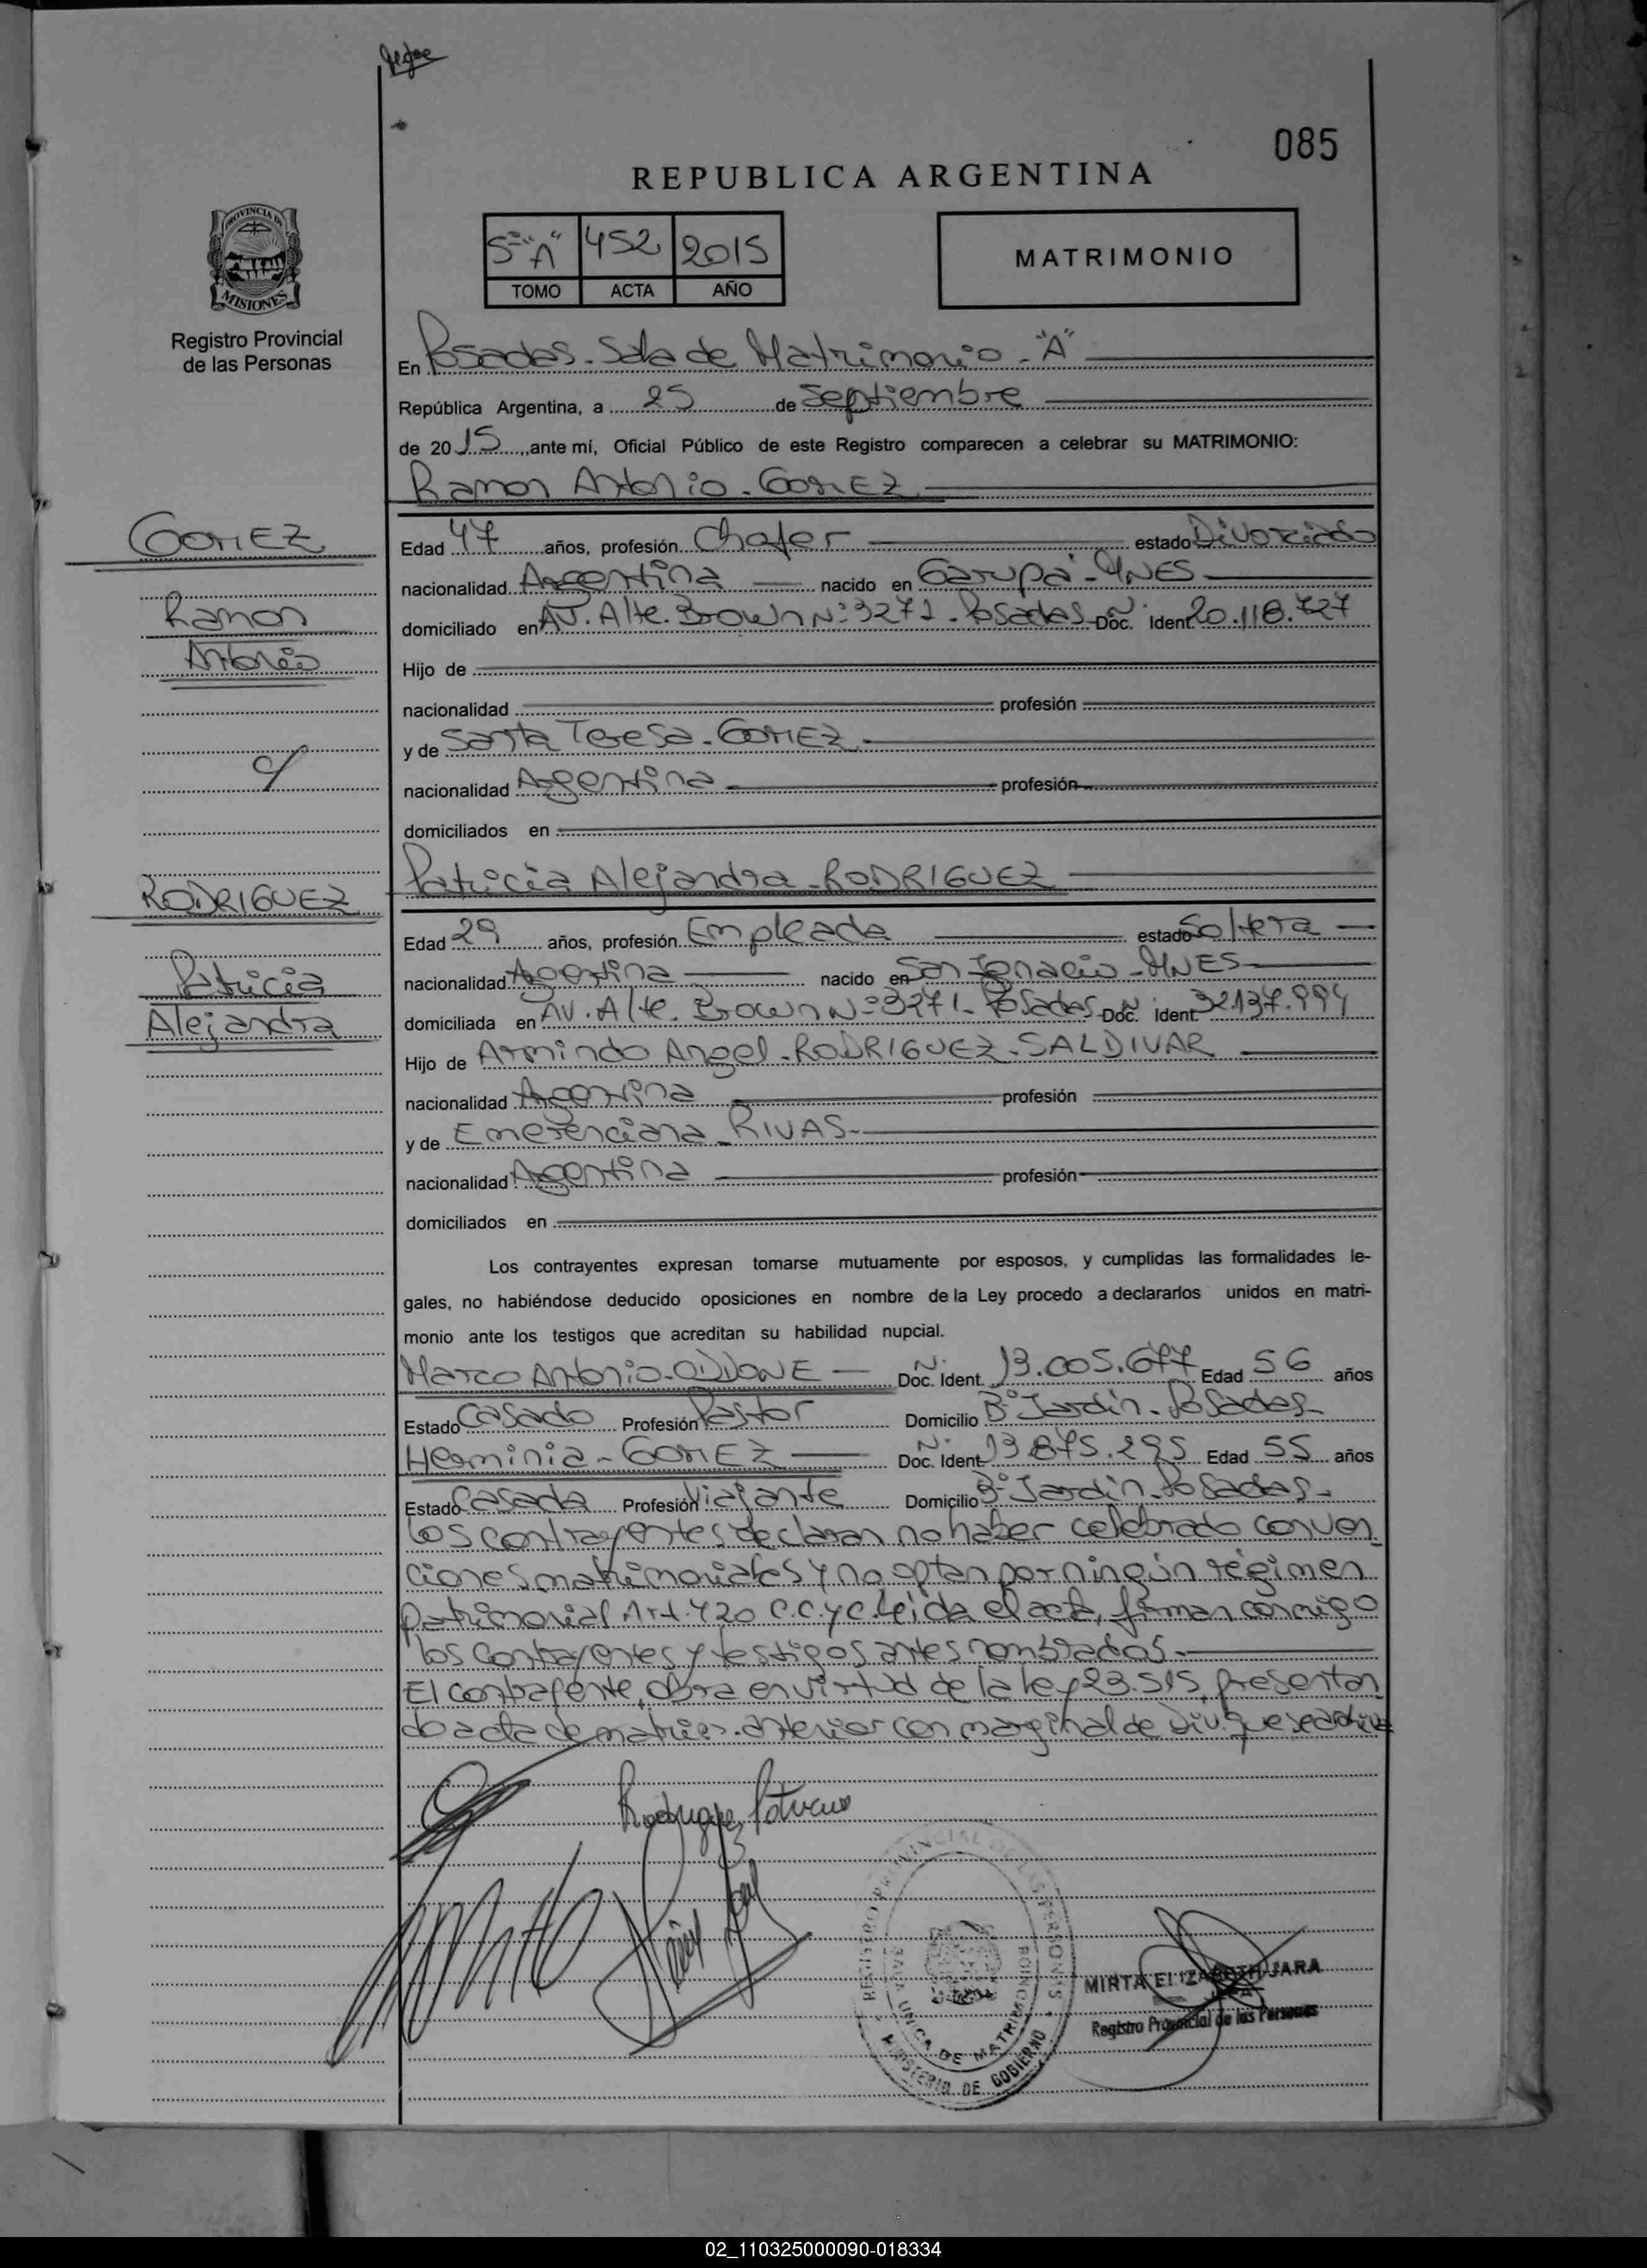 085
REPUBLICA ARGENTINA
PROVINCIA DE
MISIONES
Registro Provincial
de las Personas
5º "A" 452 2015
TOMO ACTA AÑO
MATRIMONIO
En Posadas - Sala de Matrimonio - "A"
República Argentina, a 25 de Septiembre
de 2015, ante mí, Oficial Público de este Registro comparecen a celebrar su MATRIMONIO:
Ramon Antonio - GOMEZ
GOMEZ
Ramon
Antonio
c/
RODRIGUEZ
Patricia
Alejandra
Edad 47 años, profesión Chofer estado Divorciado
nacionalidad Argentina nacido en Garupá - MNES
domiciliado en AV. Alte. Brown Nº 3271 - Posadas Nº Doc. Ident. 20.118.727
Hijo de
nacionalidad profesión
y de Santa Teresa - GOMEZ
nacionalidad Argentina profesión
domiciliados en
Patricia Alejandra - RODRIGUEZ
Edad 29 años, profesión Empleada estado Soltera
nacionalidad Argentina nacido en San Ignacio - MNES
domiciliada en AV. Alte. Brown Nº 3271 - Posadas Nº Doc. Ident. 32.137.994
Hijo de Armindo Angel - RODRIGUEZ - SALDIVAR
nacionalidad Argentina profesión
y de Emerenciana - RIVAS -
nacionalidad Argentina profesión
domiciliados en
Los contrayentes expresan tomarse mutuamente por esposos, y cumplidas las formalidades le-
gales, no habiéndose deducido oposiciones en nombre de la Ley procedo a declararlos unidos en matri-
monio ante los testigos que acreditan su habilidad nupcial.
Marco Antonio - ODDONE Nº Doc. Ident. 13.005.677 Edad 56 años
Estado Casado Profesión Pastor Domicilio Bº Jardín - Posadas -
Herminia - GOMEZ Nº Doc. Ident. 13.875.295 Edad 55 años
Estado Casada Profesión Viajante Domicilio Bº Jardín - Posadas -
Los contrayentes declaran no haber celebrado conven
ciones matrimoniales y no optan por ningún régimen
patrimonial Art. 420 C.C.yC. Leída el acta, firman conmigo
los contrayentes y testigos antes nombrados.-
El contrayente, obra en virtud de la ley 23.515, presentan
do acta de matrim. anterior con marginal de Div. que se archiva
Rodriguez Patricia
REGISTRO PROVINCIAL DE LAS PERSONAS
SALA UNICA DE MATRIMONIOS
MINISTERIO DE GOBIERNO
MIRTA ELIZABETH JARA
Registro Provincial de las Personas
02_110325000090-018334